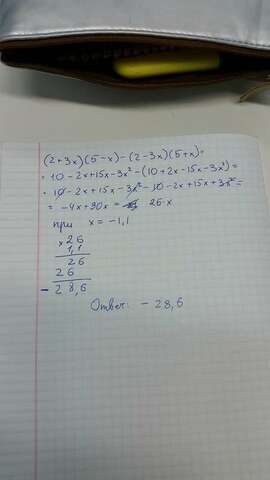 (2+3x)(5-x)-(2-3x)(5+x)=
= 10-2x+15x-3x²-(10+2x-15x-3x²)=
= 10-2x+15x-3x²-10-2x+15x+3x²=
= -4x+30x = 26·x
при x = -1,1
× 26
1,1
26
26
- 28,6
Ответ: - 28,6